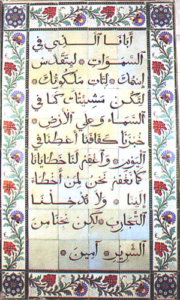 أبانا الذي في
السموات ۞ ليتقدس
إسمك ۞ ليأت ملكوتك ۞
لتكن مشيئتك كما في
السماء ۞ وعلى الأرض ۞
خبزنا كفافنا أعطنا في
اليوم ۞ وأغفر لنا خطايانا
كما نغفر نحن لمن أخطأ
إلينا ۞ ولا تدخلنا
التجارب ۞ لكن نجنا من
الشرير ۞ آمين ۞